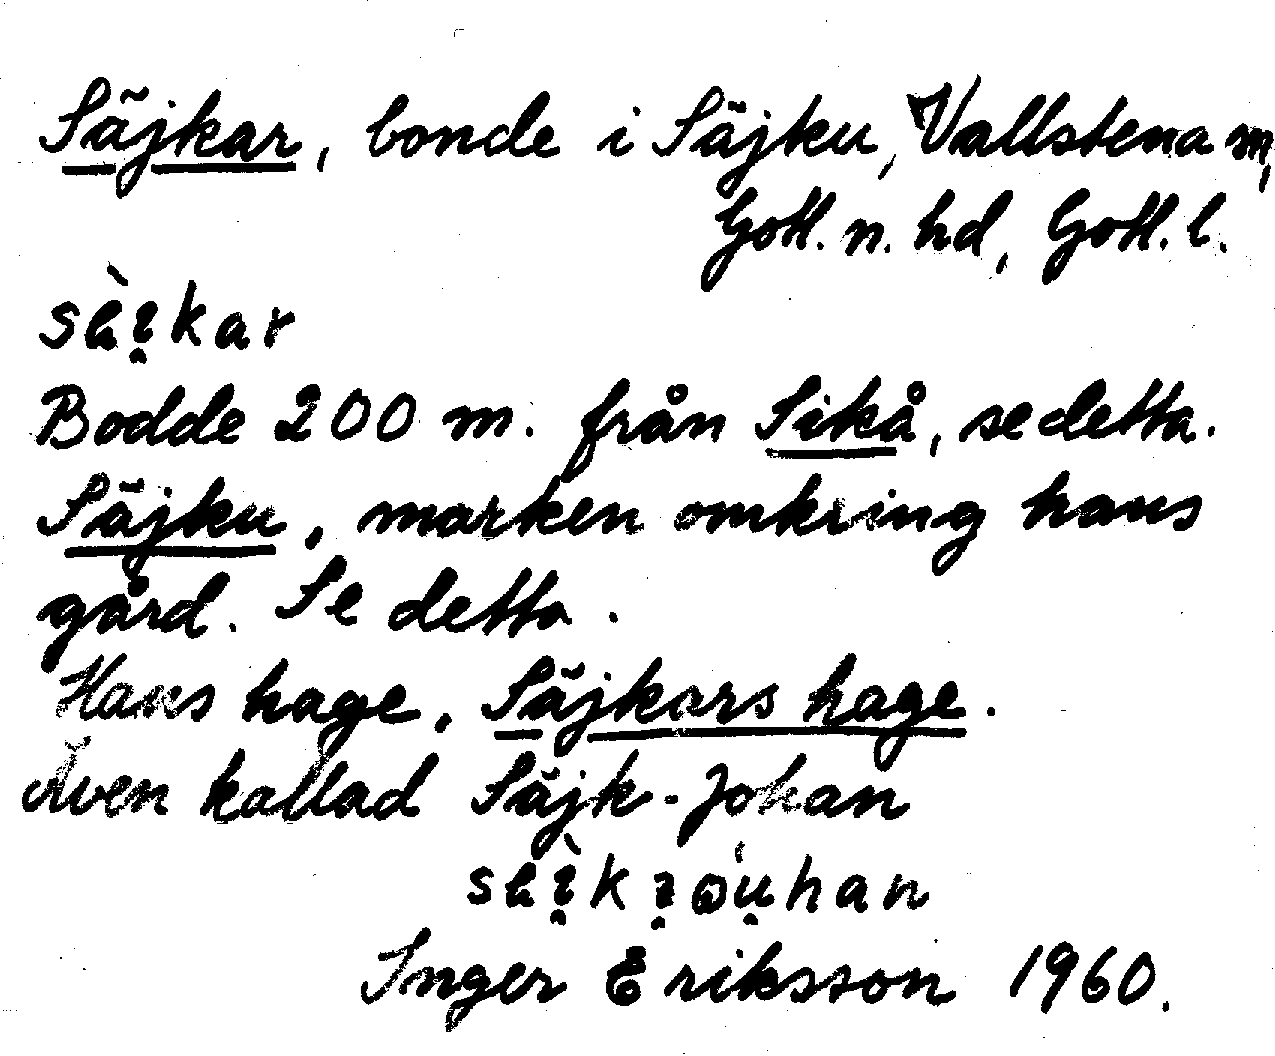 Säjkar, bonde i Säjku, Vallstena sn,
Gotl. n. hd, Gotl. l.
Bodde 200 m. från Sikå, se detta.
Säjku, marken omkring hans
gård. Se detta.
Hans hage, Säjkars hage.
Även kallad Säjk-Johan
Inger Eriksson 1960.